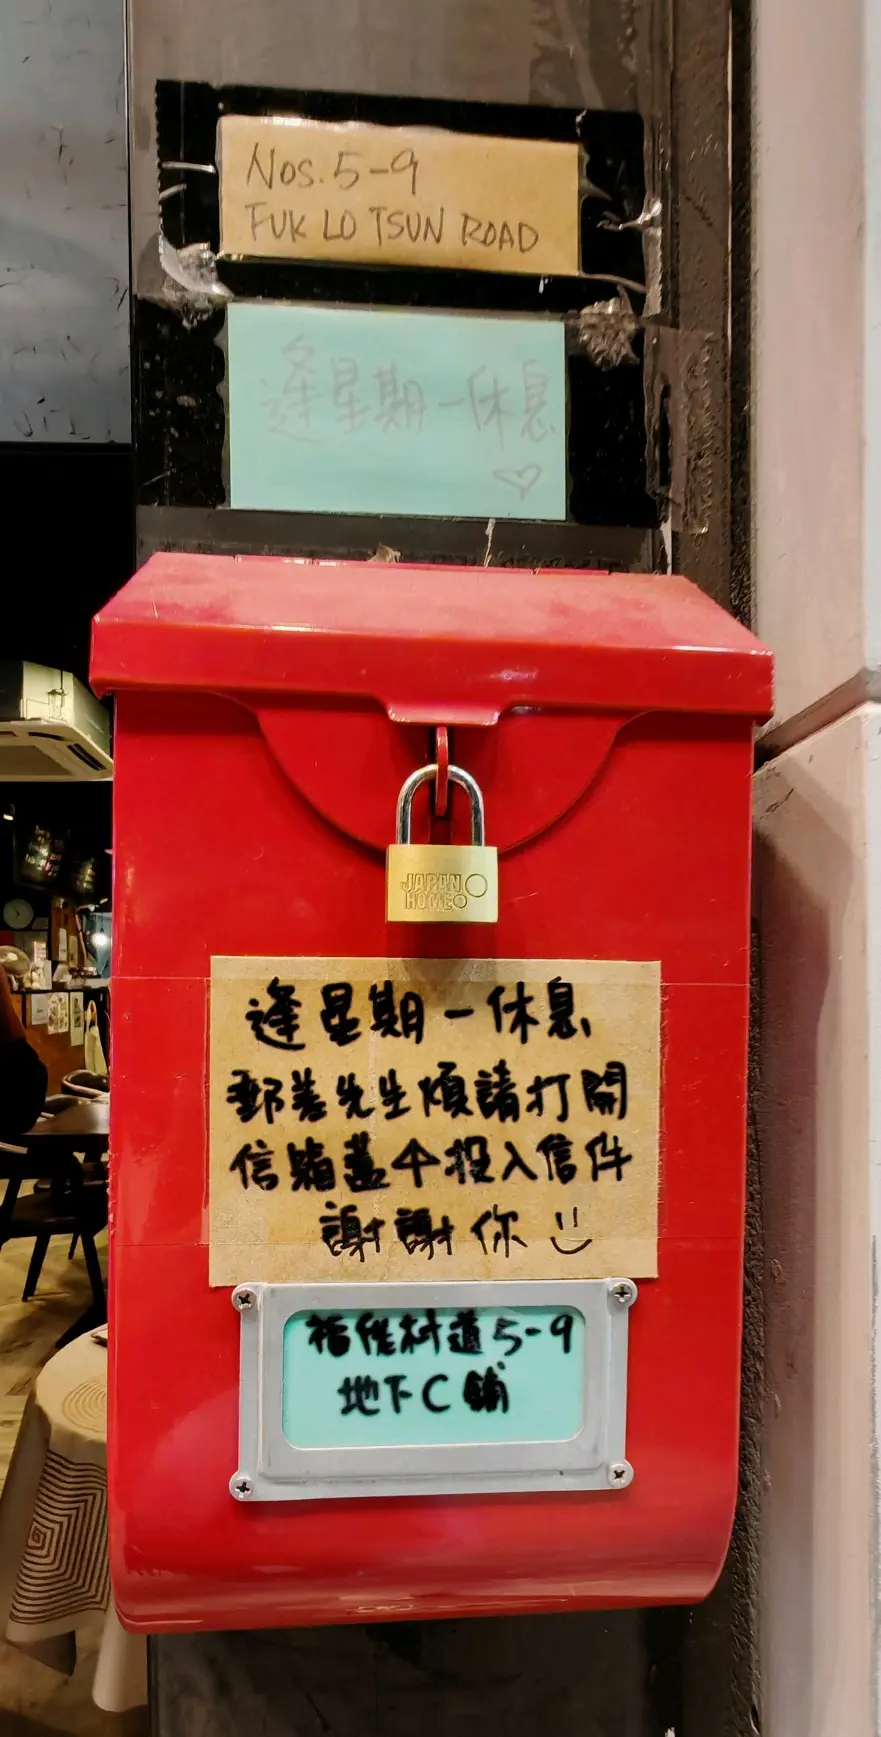 Nos. 5-9
FUK LO TSUN ROAD
逢星期一休息
♡
JAPAN
HOME
逢星期一休息
郵差先生煩請打開
信箱蓋个投入信件
謝謝你
福佬村道5-9
地下C舖